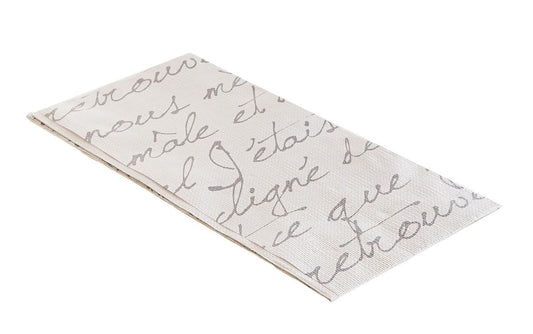 retrouv
nous me
mâle et
J'étais
digné de
ce que
retrouv